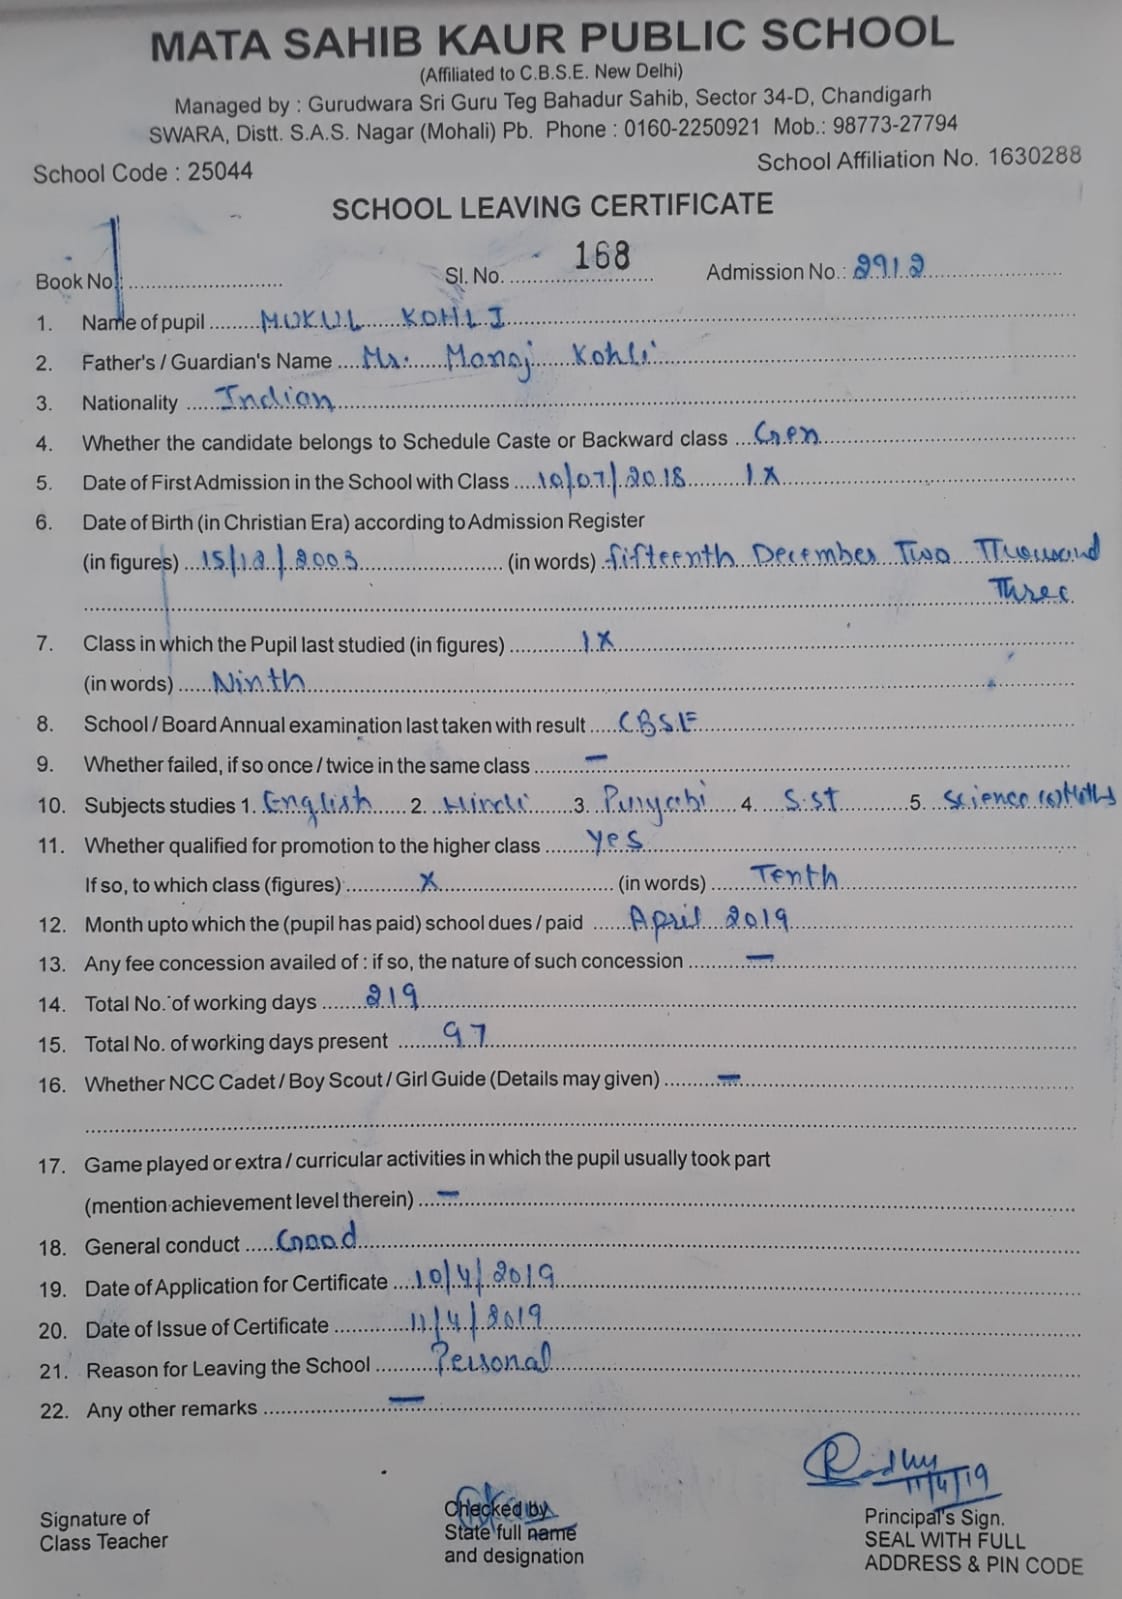 MATA SAHIB KAUR PUBLIC SCHOOL
(Affiliated to C.B.S.E. New Delhi)
Managed by : Gurudwara Sri Guru Teg Bahadur Sahib, Sector 34-D, Chandigarh
SWARA, Distt. S.A.S. Nagar (Mohali) Pb. Phone : 0160-2250921 Mob.: 98773-27794
School Code : 25044 School Affiliation No. 1630288
SCHOOL LEAVING CERTIFICATE
Book No.: Sl. No. 168 Admission No.: 2912
1. Name of pupil MUKUL KOHLI
2. Father's / Guardian's Name Mr. Manoj Kohli
3. Nationality Indian
4. Whether the candidate belongs to Schedule Caste or Backward class Gen
5. Date of First Admission in the School with Class 10/07/2018 IX
6. Date of Birth (in Christian Era) according to Admission Register
(in figures) 15/12/2003 (in words) fifteenth December Two Thousand
Three
7. Class in which the Pupil last studied (in figures) IX
(in words) Ninth
8. School / Board Annual examination last taken with result CBSE
9. Whether failed, if so once / twice in the same class —
10. Subjects studies 1. English 2. Hindi 3. Punjabi 4. S.st 5. Science (6) Maths
11. Whether qualified for promotion to the higher class Yes
If so, to which class (figures) X (in words) Tenth
12. Month upto which the (pupil has paid) school dues / paid April 2019
13. Any fee concession availed of : if so, the nature of such concession —
14. Total No. of working days 219
15. Total No. of working days present 97
16. Whether NCC Cadet / Boy Scout / Girl Guide (Details may given) —
17. Game played or extra / curricular activities in which the pupil usually took part
(mention achievement level therein) —
18. General conduct Good
19. Date of Application for Certificate 10/4/2019
20. Date of Issue of Certificate 11/4/2019
21. Reason for Leaving the School Personal
22. Any other remarks —
11/4/19
Signature of Checked by Principal's Sign.
Class Teacher State full name SEAL WITH FULL
and designation ADDRESS & PIN CODE